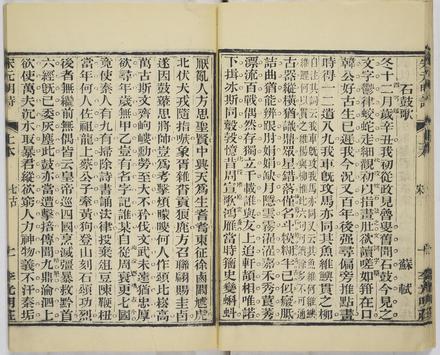 石鼓歌 蘇軾
冬十二月歲辛丑我初從政見魯叟舊聞石鼓今見之
文字鬱律蛟蛇走細觀初以指畫肚欲讀嗟如箝在口
韓公好古生已遲我今況又百年後強尋偏旁推點畫
時得一二遺八九我車旣攻馬亦同其魚維鱮貫之柳
自注其詞云我車旣攻我馬亦同又云其魚維何維鱮
維鯉何以貫之維楊與柳惟此六句可讀餘多不可通
古器縱橫猶識鼎眾星錯落僅名斗模糊半已似瘢胝
詰曲猶能辨跟肘娟娟缺月隱雲霧濯濯嘉禾秀稂莠
漂流百戰偶然存獨立千載誰與友上追軒頡相唯諾
下揖冰斯同鷇憶昔周宣歌鴻雁當時籀史變蝌蚪
厭亂人方思聖賢中興天爲生耆耇東征徐虜闞虓虎
北伏犬戎隨指嗾象胥雜沓貢狼鹿方召聯翩賜圭卣
遂因鼓鼙思將帥豈爲考擊煩矇瞍何人作頌比崧高
萬古斯文齊岣嶁勳勞至大不矜伐文武未遠猶忠厚
欲尋年歲無甲乙豈有名字記誰某自從周衰更七國
竟使秦人有九有掃除詩書誦法律投棄俎豆陳鞭杻
當年何人佐祖龍上蔡公子牽黃狗登山刻石頌功烈
後者無繼前無偶皆云皇帝巡四國烹滅彊暴救黔首
六經旣已委灰塵此鼓亦當遭擊掊傳聞九鼎淪泗上
欲使萬夫沉水取暴君縱欲窮人力神物義不汙秦垢
宋元明詩 七古